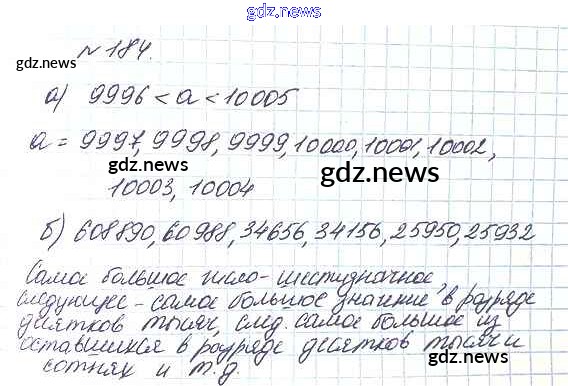 gdz.news
№ 184.
gdz.news
а) 9996 < а < 10005
а = 9997, 9998, 9999, 10000, 10001, 10002,
gdz.news
gdz.news
10003, 10004
б) 608890, 60988, 34656, 34156, 25950, 25932
Самое большое число - шестизначное,
следующее - самое большое значение в разряде
десятков тысяч, след. самое большое из
оставшихся в разряде десятков тысяч и
gdz.news
gdz.news
сотнях и т.д.